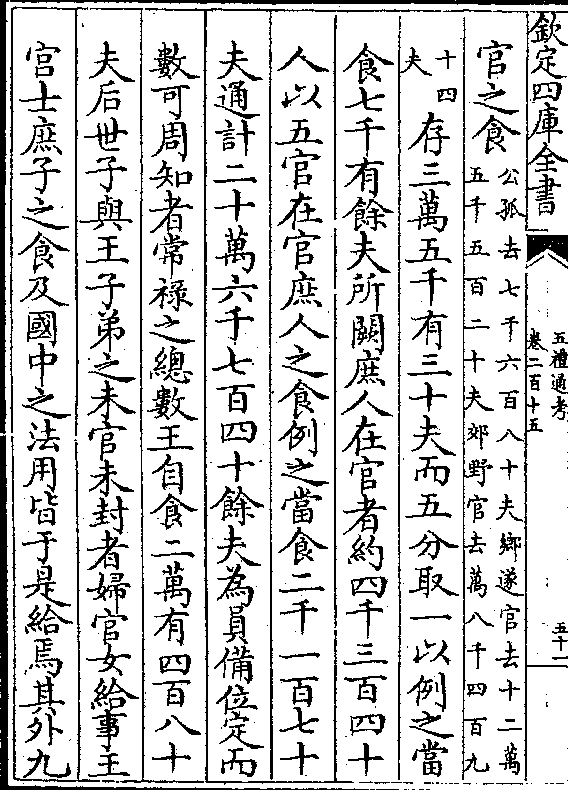 欽定四庫全書
五禮通考
卷二百十五
五十一
官之食公孤去七千六百八十夫鄉遂官去十二萬
五千五百二十夫郊野官去萬八千四百九
十四
夫存三萬五千有三十夫而五分取一以例之當
食七千有餘夫所闕庶人在官者約四千三百四十
人以五官在官庶人之食例之當食二千一百七十
夫通計二十萬六千七百四十餘夫為員備位定而
數可周知者常祿之總數王自食二萬有四百八十
夫后世子與王子弟之未官未封者婦官女給事王
宮士庶子之食及國中之法用皆于是給焉其外九